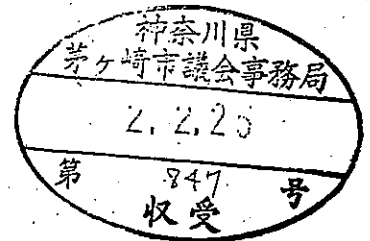 神奈川県
茅ヶ崎市議会事務局
2.2.25
第 847 号
収受